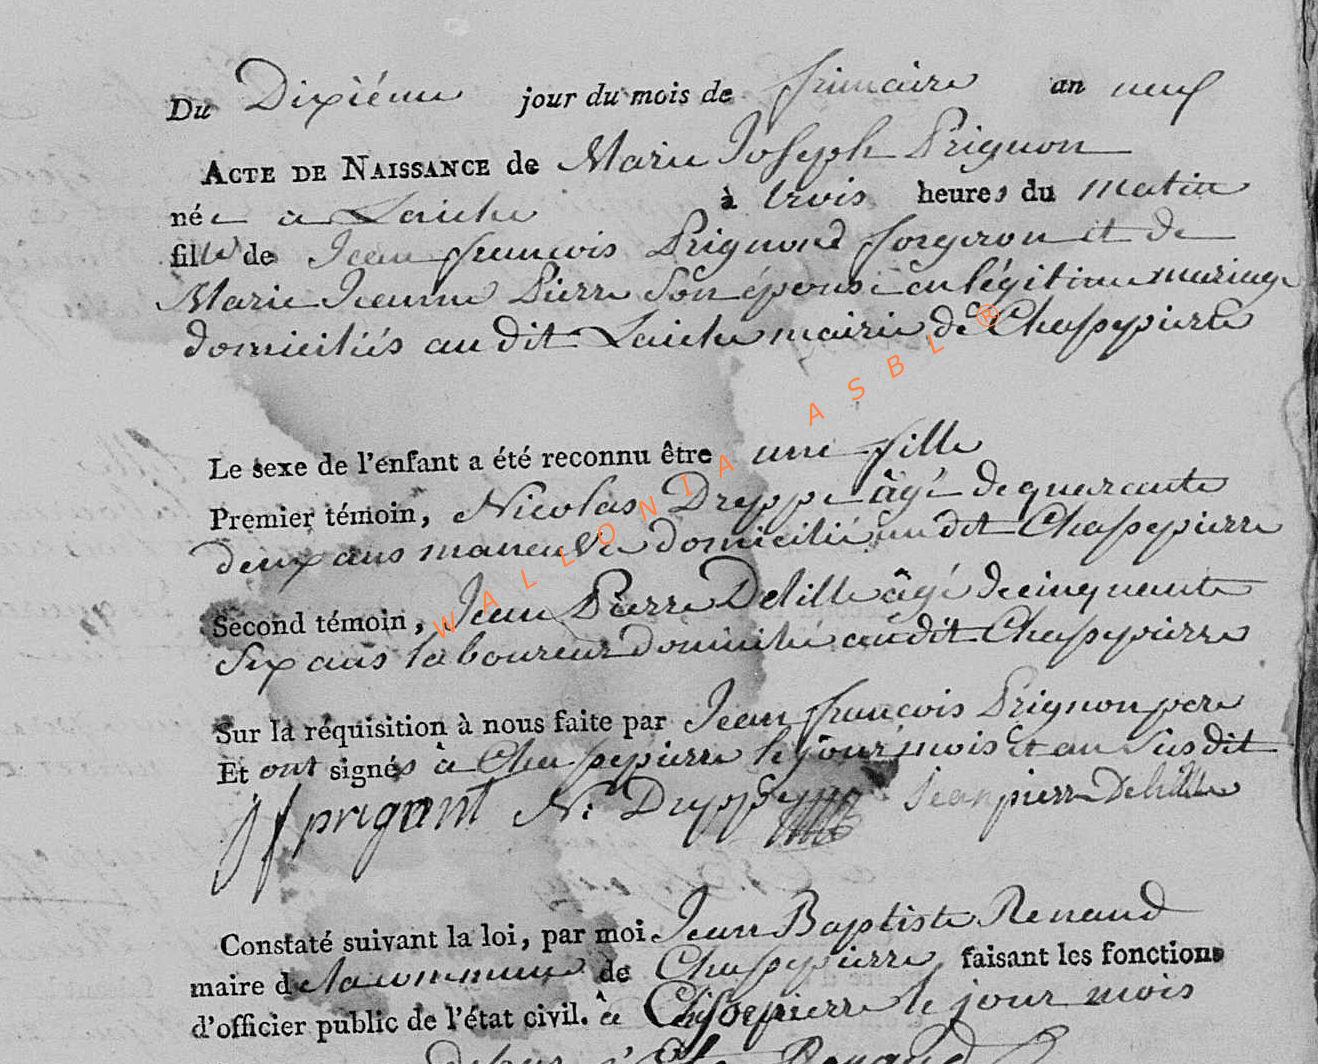 Du Dixiéme jour du mois de frimaire an neuf
ACTE DE NAISSANCE de Marie Joseph Prignon
née a Laiche à trois heures du matin
fille de Jean françois Prignond forgeron et de
Marie Jeanne Pierre Son épouse en légitime mariage
domiciliés au dit Laiche mairie de Chassepierre
Le sexe de l'enfant a été reconnu être une fille
Premier témoin, Nicolas Dreppe âgé de quarante
deux ans maneuvre domicilié au dit Chassepierre
Second témoin, Jean Pierre Delille âgé de cinquante
Six ans laboureur domicilié audit Chassepierre
Sur la réquisition à nous faite par Jean françois Prignon pere
Et ont signés à Chassepierre le jour mois et an Susdit
jf prignint N: Dreppe Jean pierre Delille
Constaté suivant la loi, par moi Jean Baptiste Renaud
maire de la commune de Chassepierre faisant les fonctions
d'officier public de l'état civil. à Chassepierre le jour mois
Renaud
WALLONIA ASBL ®